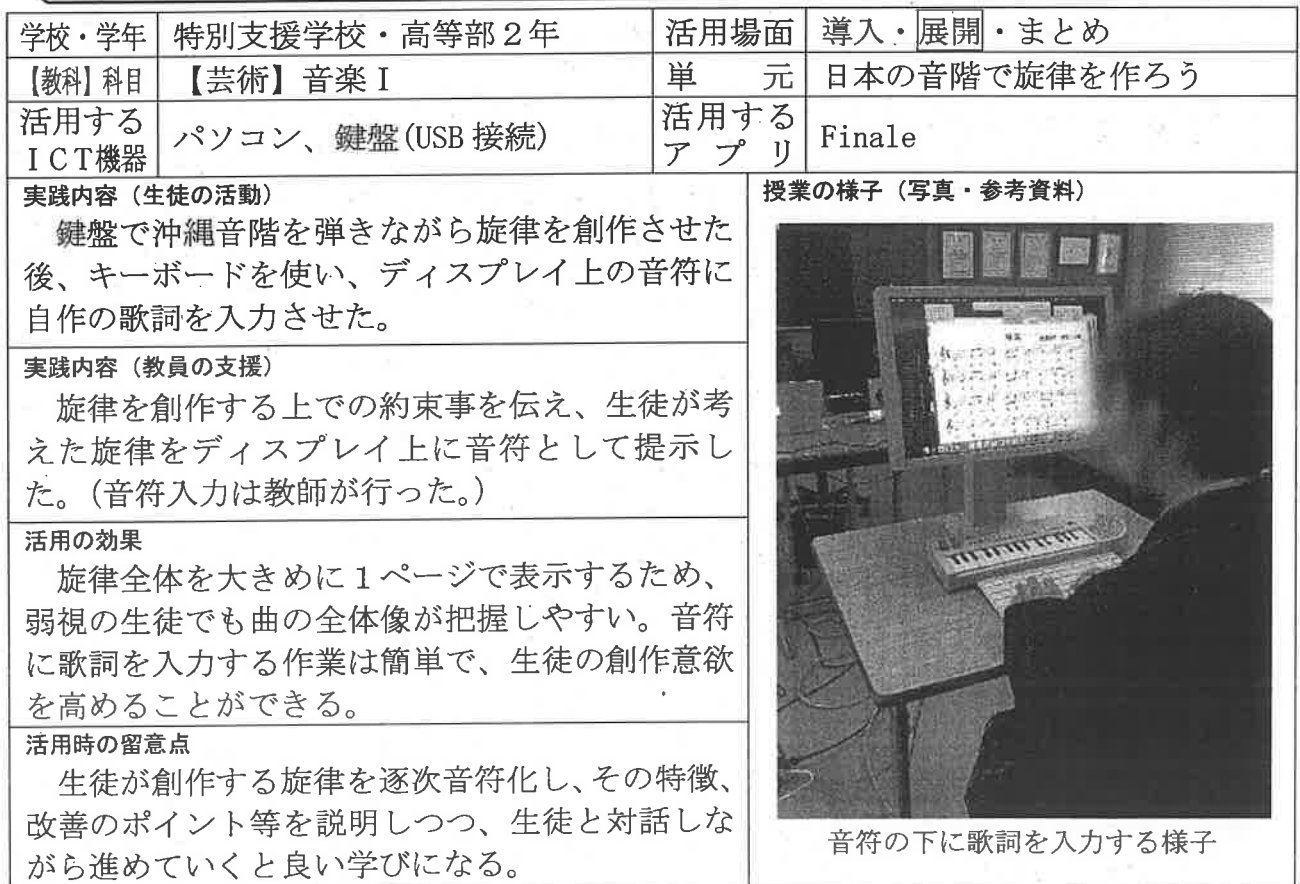 学校・学年 特別支援学校・高等部2年 活用場面 導入・展開・まとめ
【教科】科目 【芸術】音楽Ⅰ 単 元 日本の音階で旋律を作ろう
活用する
ICT機器 パソコン、鍵盤(USB接続) 活用する
アプリ Finale
実践内容(生徒の活動)
鍵盤で沖縄音階を弾きながら旋律を創作させた
後、キーボードを使い、ディスプレイ上の音符に
自作の歌詞を入力させた。
実践内容(教員の支援)
旋律を創作する上での約束事を伝え、生徒が考
えた旋律をディスプレイ上に音符として提示し
た。(音符入力は教師が行った。)
活用の効果
旋律全体を大きめに1ページで表示するため、
弱視の生徒でも曲の全体像が把握しやすい。音符
に歌詞を入力する作業は簡単で、生徒の創作意欲
を高めることができる。
活用時の留意点
生徒が創作する旋律を逐次音符化し、その特徴、
改善のポイント等を説明しつつ、生徒と対話しな
がら進めていくと良い学びになる。
授業の様子(写真・参考資料)
音符の下に歌詞を入力する様子